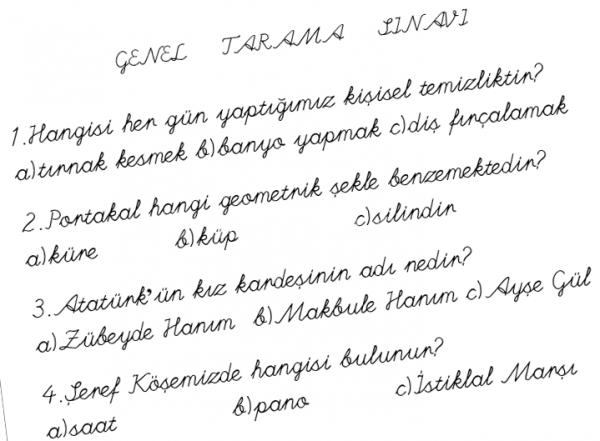 GENEL TARAMA SINAVI
1.Hangisi her gün yaptığımız kişisel temizliktir?
a)tırnak kesmek b)banyo yapmak c)diş fırçalamak
2.Portakal hangi geometrik şekle benzemektedir?
a)küre b)küp c)silindir
3.Atatürk'ün kız kardeşinin adı nedir?
a)Zübeyde Hanım b)Makbule Hanım c)Ayşe Gül
4.Şeref Köşemizde hangisi bulunur?
a)saat b)pano c)İstiklal Marşı